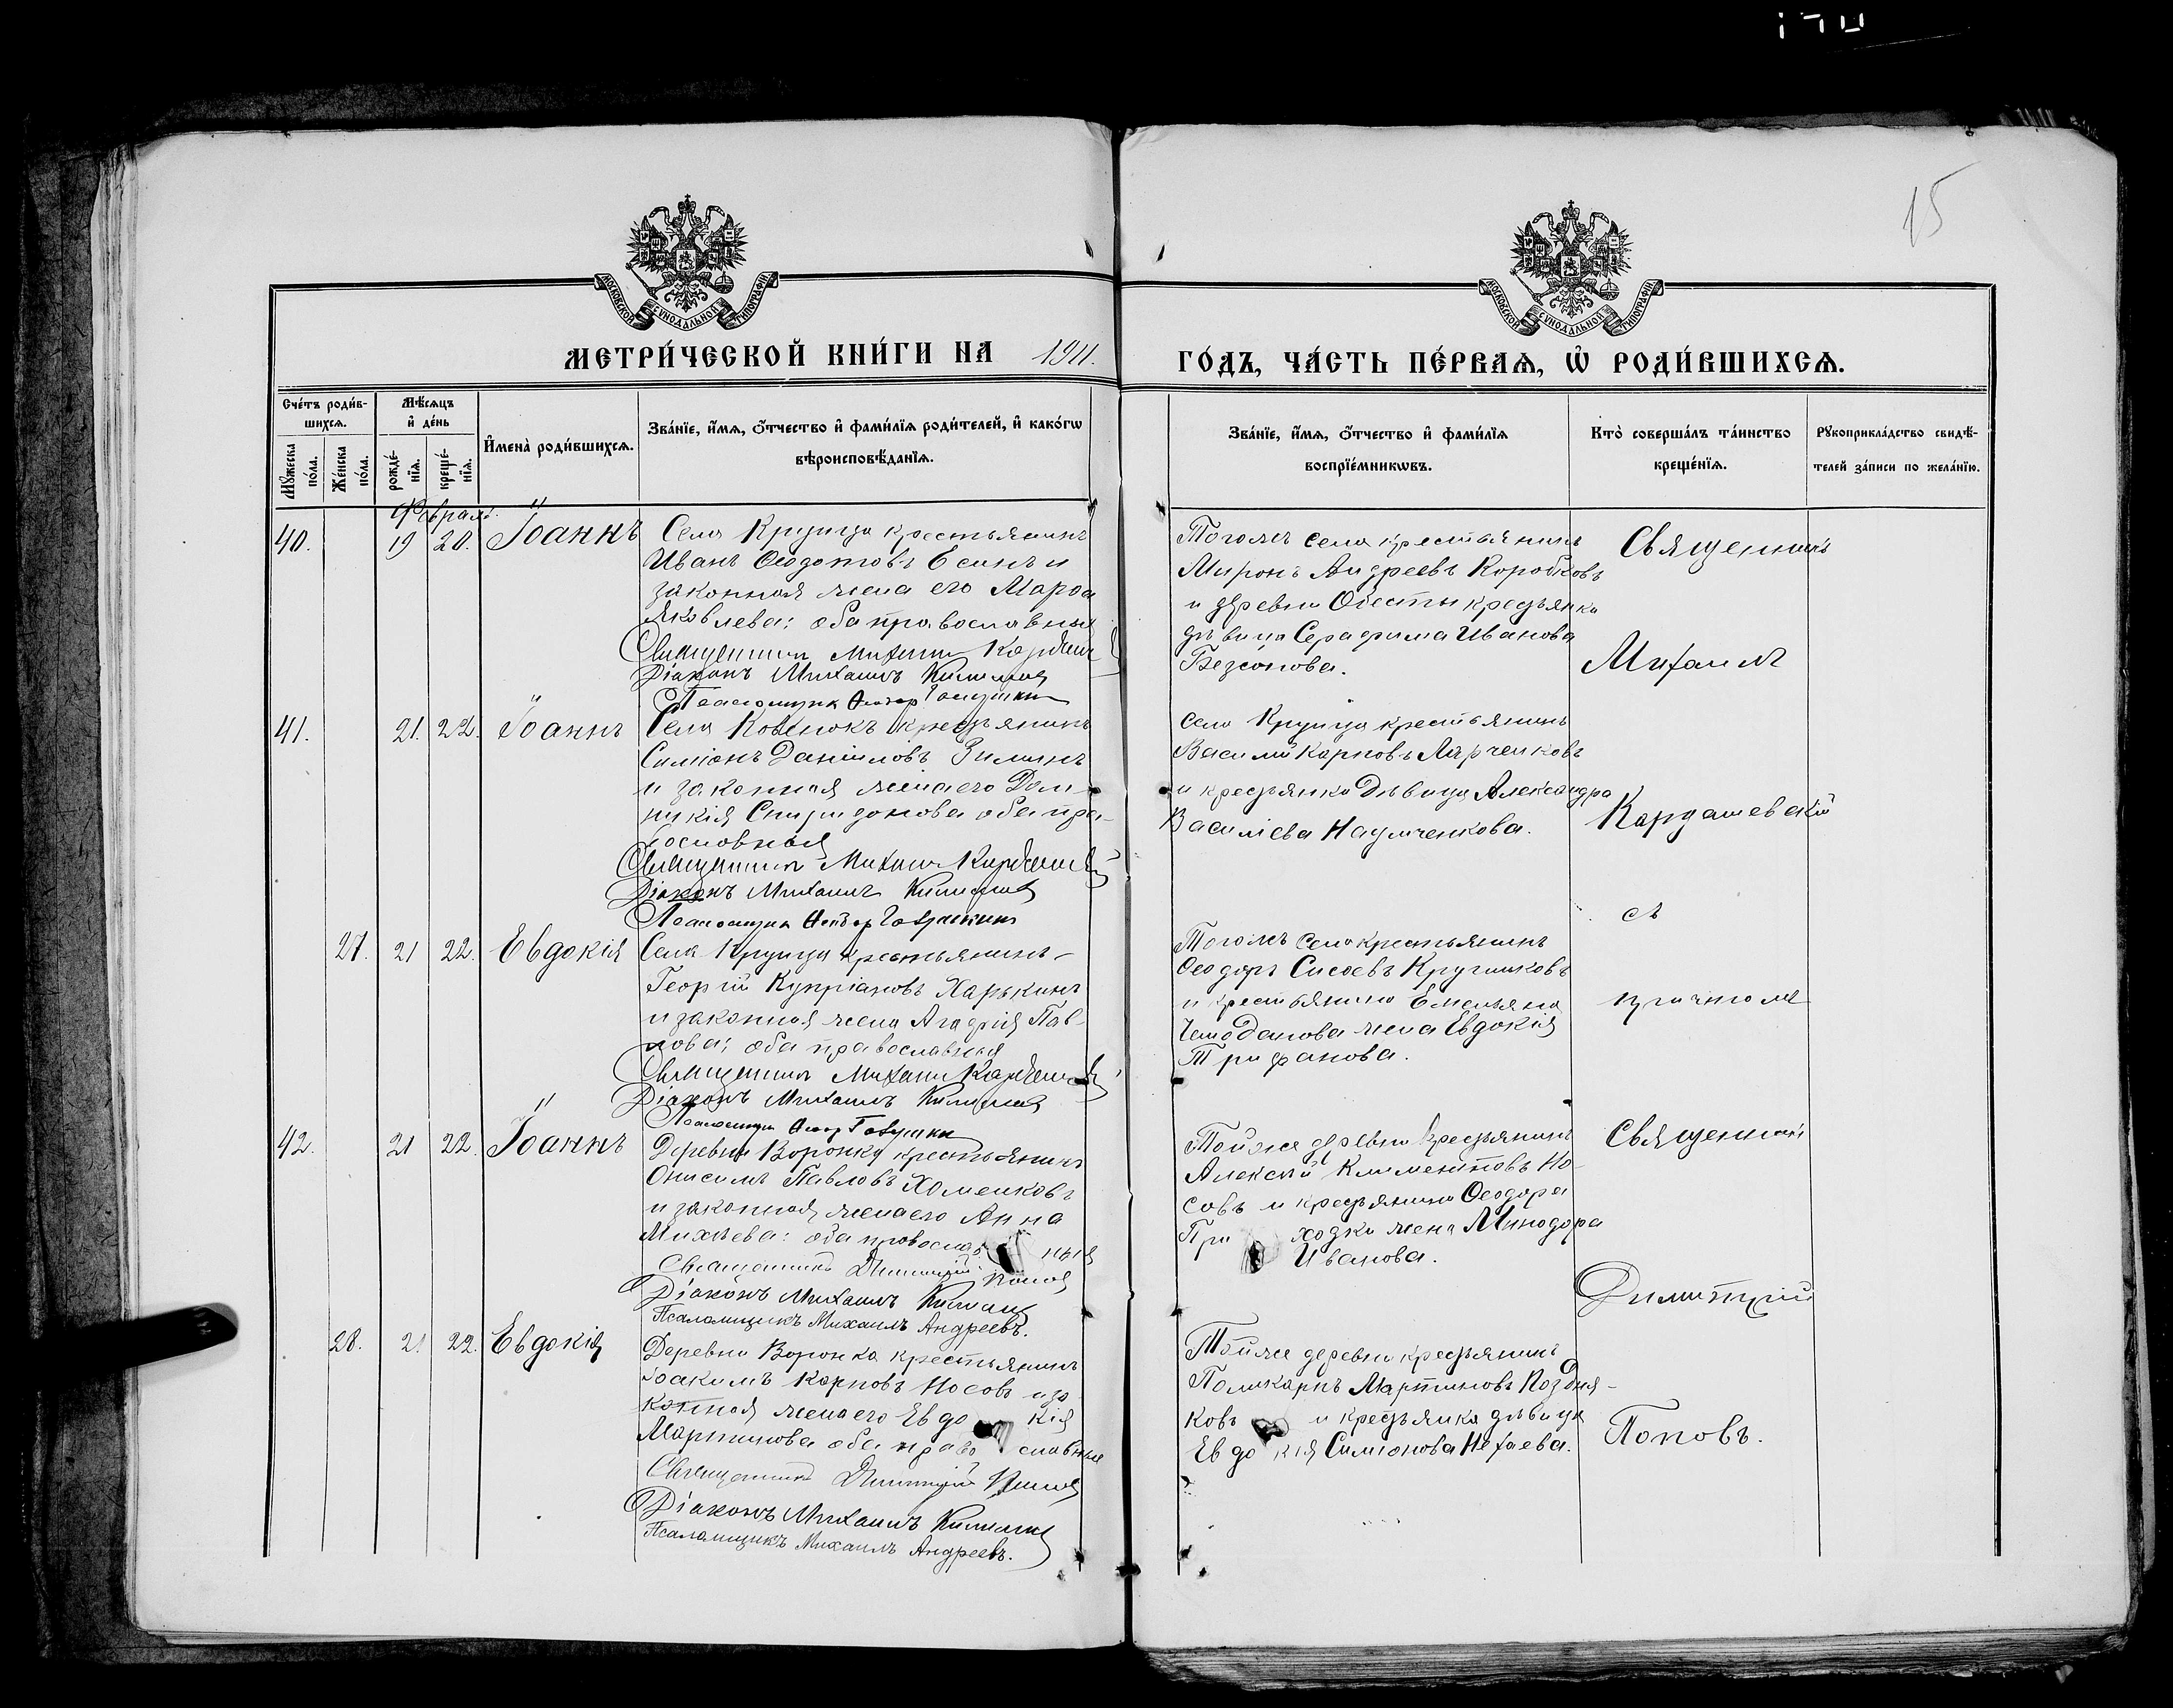 15
МОСКОВСКОЙ СѴНОДАЛЬНОЙ ТИПОГРАФІИ
МОСКОВСКОЙ СѴНОДАЛЬНОЙ ТИПОГРАФІИ
МЕТРИ́ЧЕСКОЙ КНИ́ГИ НА 1911.
ГО́ДЪ, ЧА́СТЬ ПЕ́РВАѦ, Ѡ РОДИ́ВШИХСѦ.
Сче́тъ роди́вшихсѧ.
Мꙋ́жеска по́ла.
Же́нска по́ла.
Мѣ́сѧцъ и де́нь
рожде́нїѧ.
креще́нїѧ.
Имена̀ роди́вшихсѧ.
Зва́нїе, и́мѧ, о́тчество и фами́лїѧ роди́телей, и како́гѡ
вѣроисповѣ́данїѧ.
Зва́нїе, и́мѧ, о́тчество и фами́лїѧ
воспрїе́мникѡвъ.
Кто̀ соверша́лъ та́инство
креще́нїѧ.
Рꙋкоприкла́дство свидѣ́-
телей за́писи по жела́нїю.
Февраля.
40. 19 20. Іоаннъ
Села Крупца крестьянинъ
Иванъ Ѳеодотовъ Есинъ и
законная жена его Марѳа
Яковлева; оба православныя
Священникъ Михаилъ
Діаконъ Михаилъ
Псаломщикъ
Тогожъ села крестьянинъ
Миронъ Андреевъ Коробковъ
и деревни Обесты кресьянка
дѣвица Серафима Иванова
Безсонова.
Священникъ
Михаилъ
41. 21. 22. Іоаннъ
Села Ковенокъ кресьянинъ
Симіонъ Даніиловъ Зиминъ
и законная жена его Дом-
никія Спиридонова оба пра-
вославныя
Священникъ Михаилъ
Діаконъ Михаилъ
Псаломщикъ
села Крупца крестьянинъ
Василій Карповъ Ларченковъ
и кресьянка Дѣвица Александра
Василіева Наумченкова.
Кардашевскій
съ
27. 21 22. Евдокія
Села Крупца крестьянинъ
Георгій Купріановъ Харькинъ
и законная жена Агафія Пав-
лова; оба православныя
Священникъ Михаилъ
Діаконъ Михаилъ
Псаломщикъ
Тогожъ села крестьянинъ
Ѳеодоръ Сисоевъ Кругликовъ
и крестьянина Емельяна
Чемоданова жена Евдокія
Трифанова.
причтомъ
42. 21 22. Іоаннъ
Деревни Воронка крестьянинъ
Онисимъ Павловъ Хоменковъ
и законная жена его Анна
Михѣева: оба православныя
Священникъ Димитрій Поповъ
Діаконъ Михаилъ
Псаломщикъ Михаилъ Андреевъ.
Тойже деревни кресьянинъ
Алексѣй Климентовъ Но-
совъ и кресьянина Ѳеодора
Приходки жена Минодора
Иванова.
Священникъ
Димитрій
28. 21 22. Евдокія
Деревни Воронка крестьянинъ
Іоакимъ Карповъ Носовъ и за-
конная жена его Евдокія
Мартинова оба православные
Священникъ Димитрій Поповъ
Діаконъ Михаилъ
Псаломщикъ Михаилъ Андреевъ.
Тойже деревни кресьянинъ
Поликарпъ Мартиновъ Поздня-
ковъ и кресьянка дѣвица
Евдокія Симіонова Нехаева.
Поповъ.